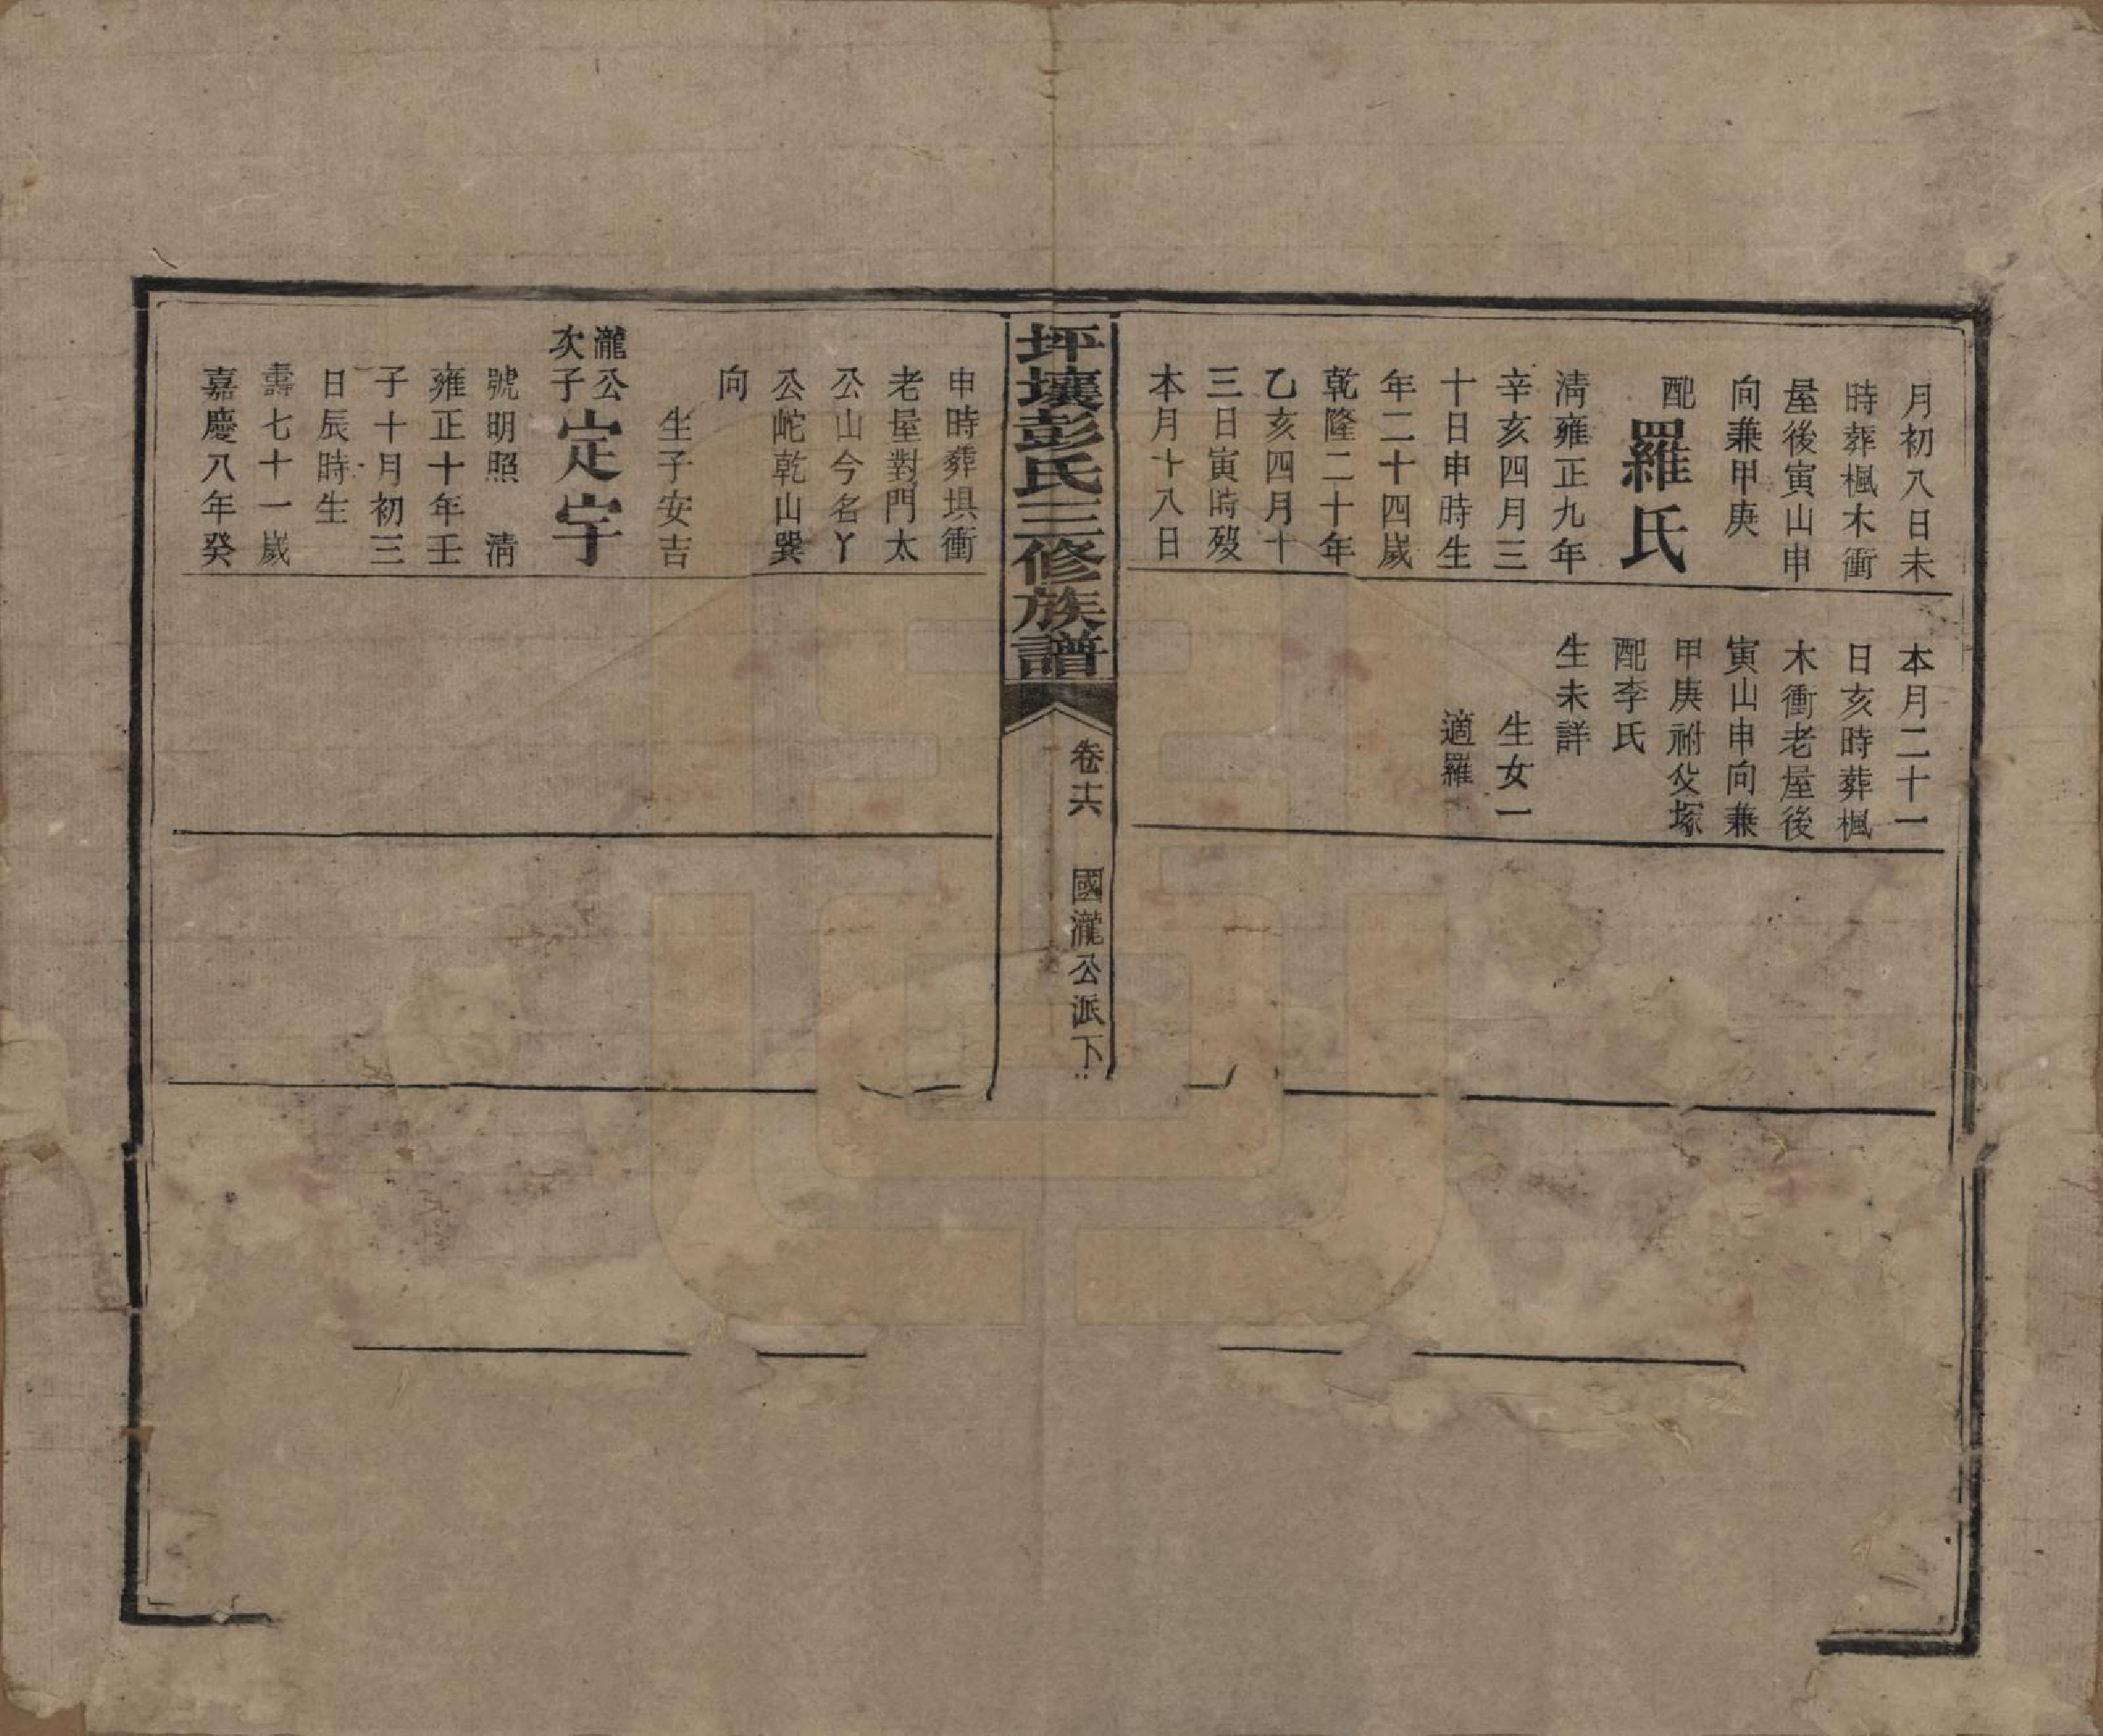 月初八日未
時葬楓木衝
屋後寅山申
向兼甲庚
配
羅氏
清雍正九年
辛亥四月三
十日申時生
年二十四歲
乾隆二十年
乙亥四月十
三日寅時歿
本月十八日
本月二十一
日亥時葬楓
木衝老屋後
寅山申向兼
甲庚祔父塚
配李氏
生未詳
生女一
適羅
坪壤彭氏三修族譜
卷十六
國瀧公派下
申時葬垻衝
老屋對門太
公山今名丫
公屹乾山巽
向
生子安吉
瀧公
次子
定宇
號明照 清
雍正十年壬
子十月初三
日辰時生
壽七十一歲
嘉慶八年癸